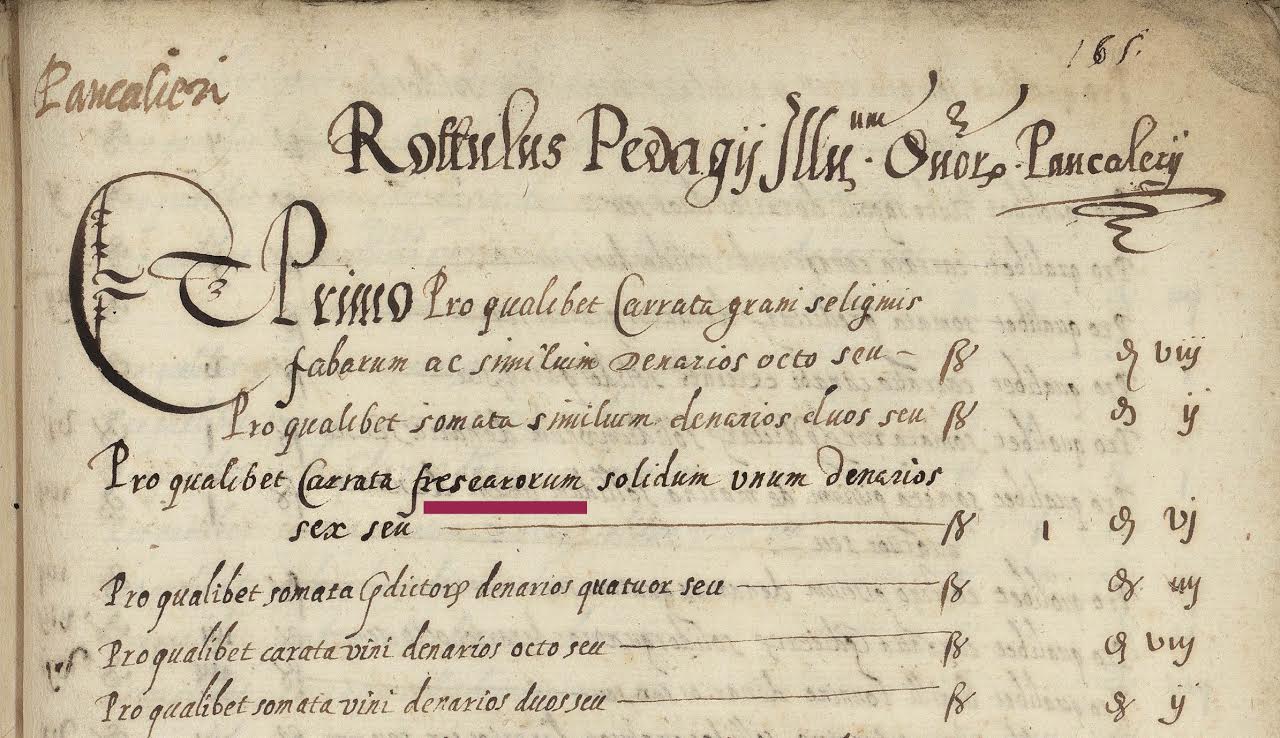 165.
Pancalieri
Rottulus Pedagij Illu.um Dnor. Pancalerij
Et Primo Pro qualibet Carrata grani seliginis
fabarum ac similium denarios octo seu – ß ₰ viij
Pro qualibet somata similium denarios duos seu ß ₰ ij
Pro qualibet Carrata fresearorum solidum unum denarios
sex seu ß 1 ₰ vj
Pro qualibet somata pdictoꝝ denarios quatuor seu ß ₰ iiij
Pro qualibet carata vini denarios octo seu ß ₰ viij
Pro qualibet somata vini denarios duos seu ß ₰ ij